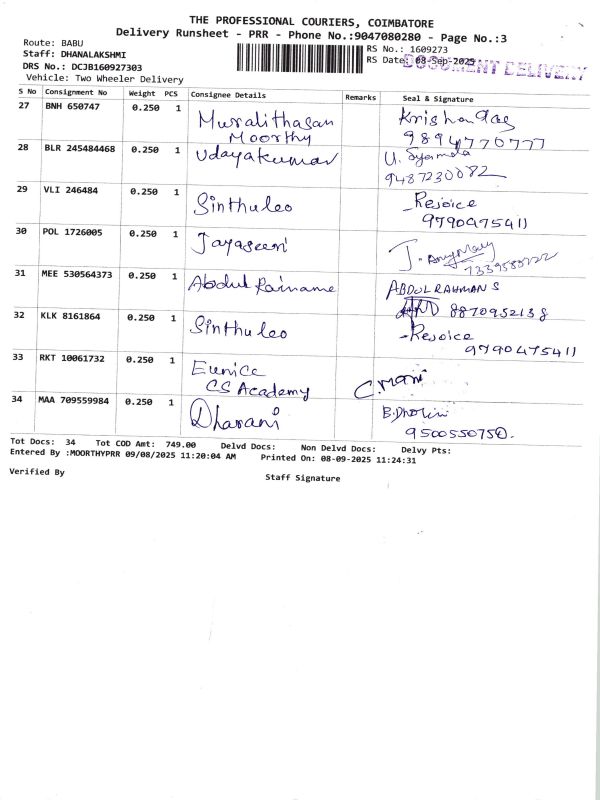 THE PROFESSIONAL COURIERS, COIMBATORE
Delivery Runsheet - PRR - Phone No.:9047080280 - Page No.:3
Route: BABU
RS No.: 1609273
Staff: DHANALAKSHMI
RS Date: 08-Sep-2025
DOCUMENT DELIVERY
DRS No.: DCJB160927303
Vehicle: Two Wheeler Delivery
S No Consignment No Weight PCS Consignee Details Remarks Seal & Signature
27 BNH 650747 0.250 1 Muralithasan Krishna das
Moorthy 9894770777
28 BLR 245484468 0.250 1 Udayakumar U. Syamala
9487230082
29 VLI 246484 0.250 1 Sinthuleo Rejoice
9790475411
30 POL 1726005 0.250 1 Jayaseeni J.
31 MEE 530564373 0.250 1 Abdul Rainame ABDUL RAHMAN S
8870952138
32 KLK 8161864 0.250 1 Sinthuleo Rejoice
9790475411
33 RKT 10061732 0.250 1 Eunice C. Mani
CS Academy
34 MAA 709559984 0.250 1 Dharani B. Dharini
9500550750.
Tot Docs: 34 Tot COD Amt: 749.00 Delvd Docs: Non Delvd Docs: Delvy Pts:
Entered By :MOORTHYPRR 09/08/2025 11:20:04 AM Printed On: 08-09-2025 11:24:31
Verified By
Staff Signature